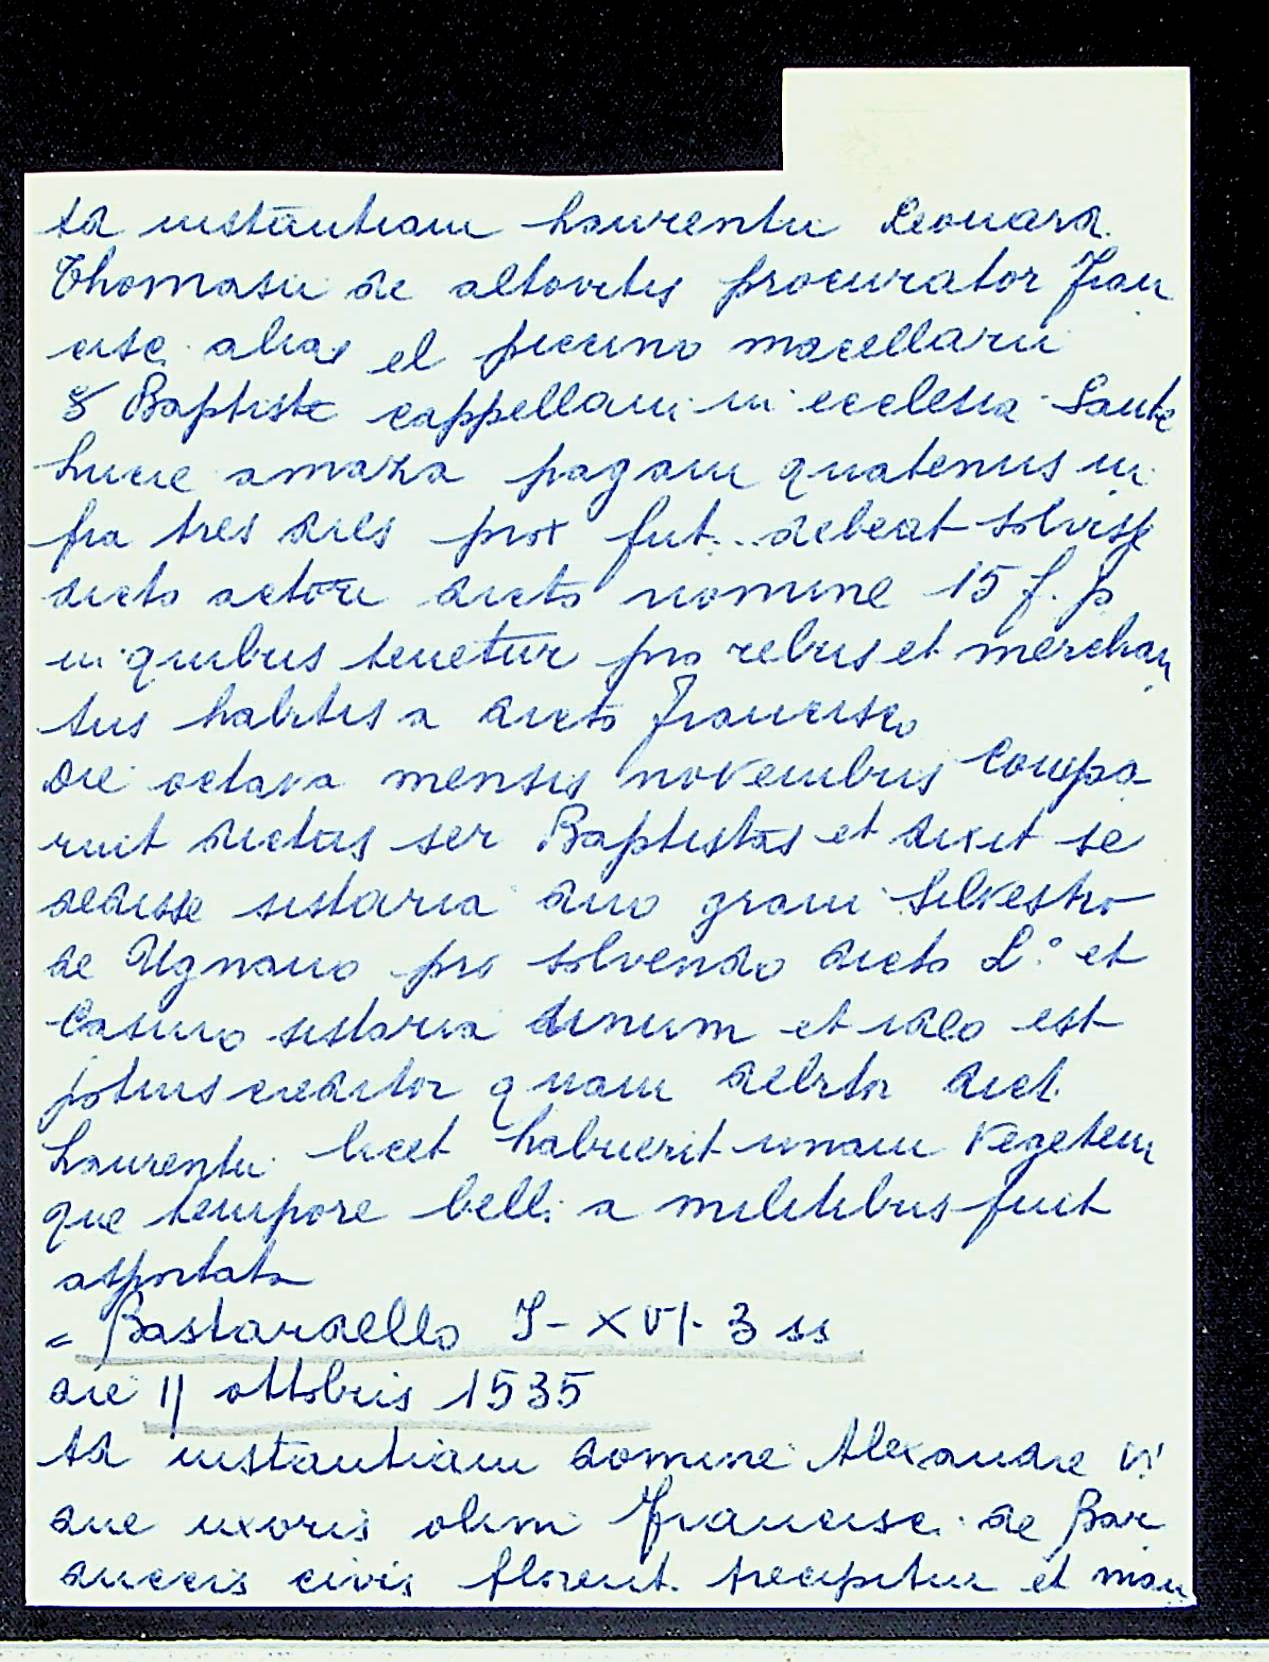 Ad instantiam Laurentii Leonard.
Thomasii de altovitis procurator Fran
cisc. alias el piccino macellarii
Baptiste cappellani in ecclesia Sante
Lucie a maza pagani quatenus in
fra tres dies prox fut... debeat solvisse
dicto actori dicto nomine 15 f. p
in quibus tenetur pro rebus et merchan
tiis habitis a dicto Francisco
Die octava mensis novembris Compa
ruit dictus ser Baptistas et dixit se
dedisse sistaria duo grani Silvestro
de Ugnano pro solvendo dicto L.° et
sistaria unum et ideo est
potius creditor quam debitor dict.
Laurentii licet habuerit unam vegetem
que tempore belli a militibus fuit
asportata
= Bastardello I-XVI-3 ss
die 11 ottobris 1535
Ad instantiam domine Alexandre vi
due uxoris olim Francisc. de Bar
duccis civis florent. precipitur et man